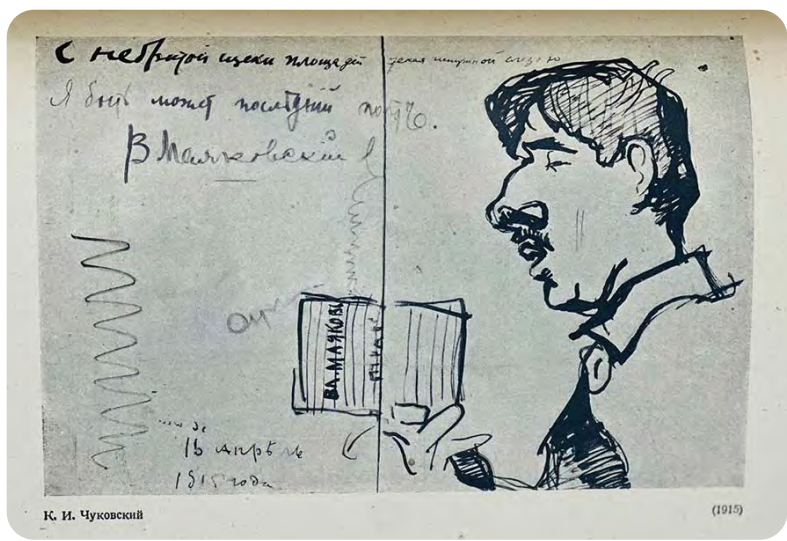 С небритой щеки площадей текая ненужной слезою
Я быть может последний поэт.
В Маяковский
ВЛ.МАЯКОВ
15 апрѣля
1915 года
К. И. Чуковский
(1915)